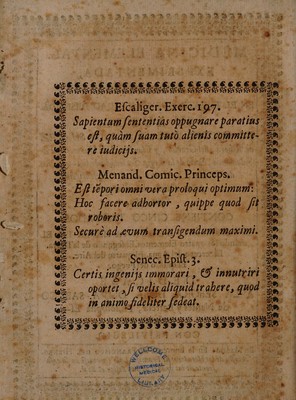 Eſcaliger. Exerc. 197.
Sapientum ſententias oppugnare paratius
eſt, quàm ſuam tutò alienis committe-
re iudicijs.
Menand. Comic. Princeps.
Eſt tẽpori omni vera proloqui optimum:
Hoc facere adhortor, quippe quod ſit
roboris.
Securè ad ævum tranſigendum maximi.
Senec. Epiſt. 3.
Certis ingenijs immorari, & innutriri
oportet, ſi velis aliquid trahere, quod
in animo fideliter ſedeat.
WELLCOME
HISTORICAL
MEDICAL
LIBRARY